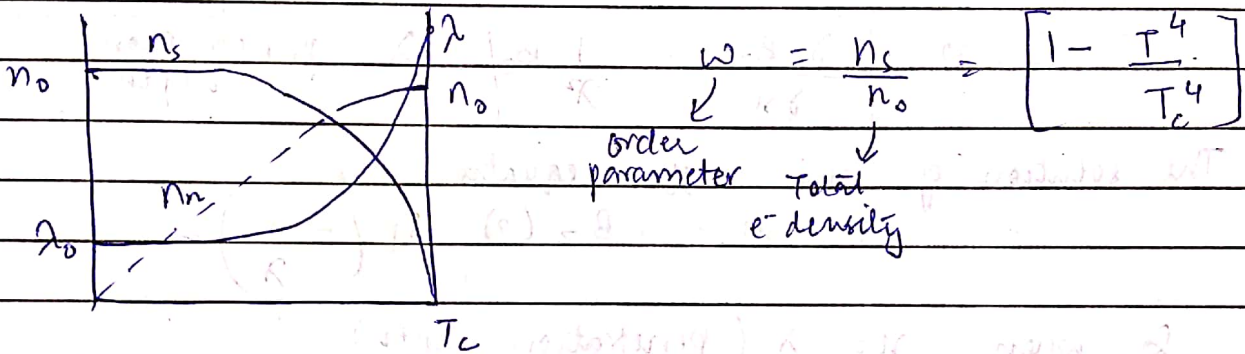 n₀ nₛ λ n₀
nₙ
λ₀
T_c
ω = nₛ/n₀ = [1 - T⁴/T_c⁴]
order parameter
Total e⁻ density